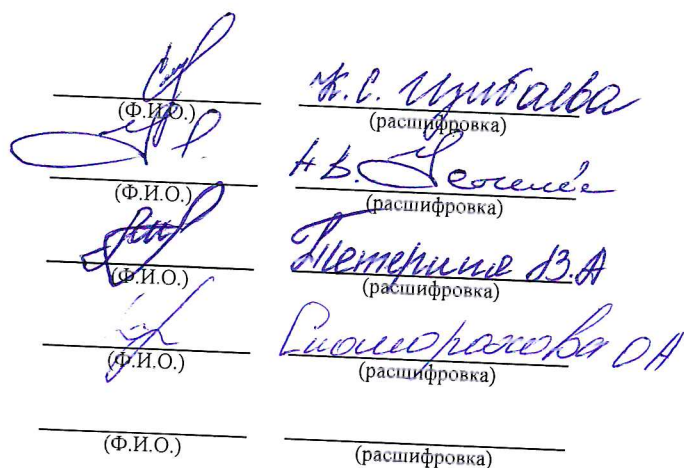 К.С. Изибаева
(Ф.И.О.) (расшифровка)
Н.В.
(Ф.И.О.) (расшифровка)
Тетерина В.А
(Ф.И.О.) (расшифровка)
Скоморохова О А
(Ф.И.О.) (расшифровка)
(Ф.И.О.) (расшифровка)